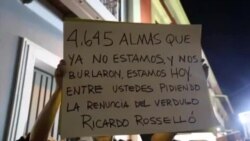 4.645 ALMAS QUE
YA NO ESTAMOS, Y NOS
BURLARON, ESTAMOS HOY
ENTRE USTEDES PIDIENDO
LA RENUCIA DEL VERDULO
RICARDO ROSSELLÓ